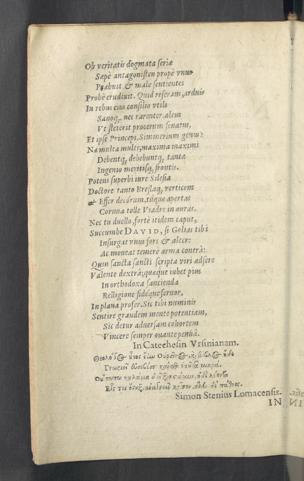 Ob veritatis dogmata seriæ
Sæpè antagonisten propè vnus
Præbuit & male sentientes
Probè erudiuit. Quid referam, arduis
In rebus eius consilio vtilo
Sanoq́, nec rarenter, alem
Vt steterit procerum senatus,
Et ipse Princeps. Simmerium genus?
Na multa multis, maxima maximi
Debentq́, debebuntq́, tanta
Ingenio meritisq́, frontis.
Potens superbi iure Silesia
Doctore tanto Breslaq́, verticem
Effer decorum, túque apertas
Corona tolle Viadre in auras.
Nec tu duello, fortè itidem caput,
Succumbe DAVID, si Golias tibi
Insurgat vnus fors & alter:
Ac moueat temerè arma contrà:
Quin sancta sancti scripta viri adsere
Valente dextrâ; quæque iubet pim
In orthodoxa sancienda
Relligione fidéque seruor,
In plana profer. Sic tibi numinis
Sentire graudeis mente potentiam,
Sic detur aduersam cohortem
Vincere semper ouante penná.
In Catechesin Vrsinianam.
Simon Stenius Lomacensis.
IN